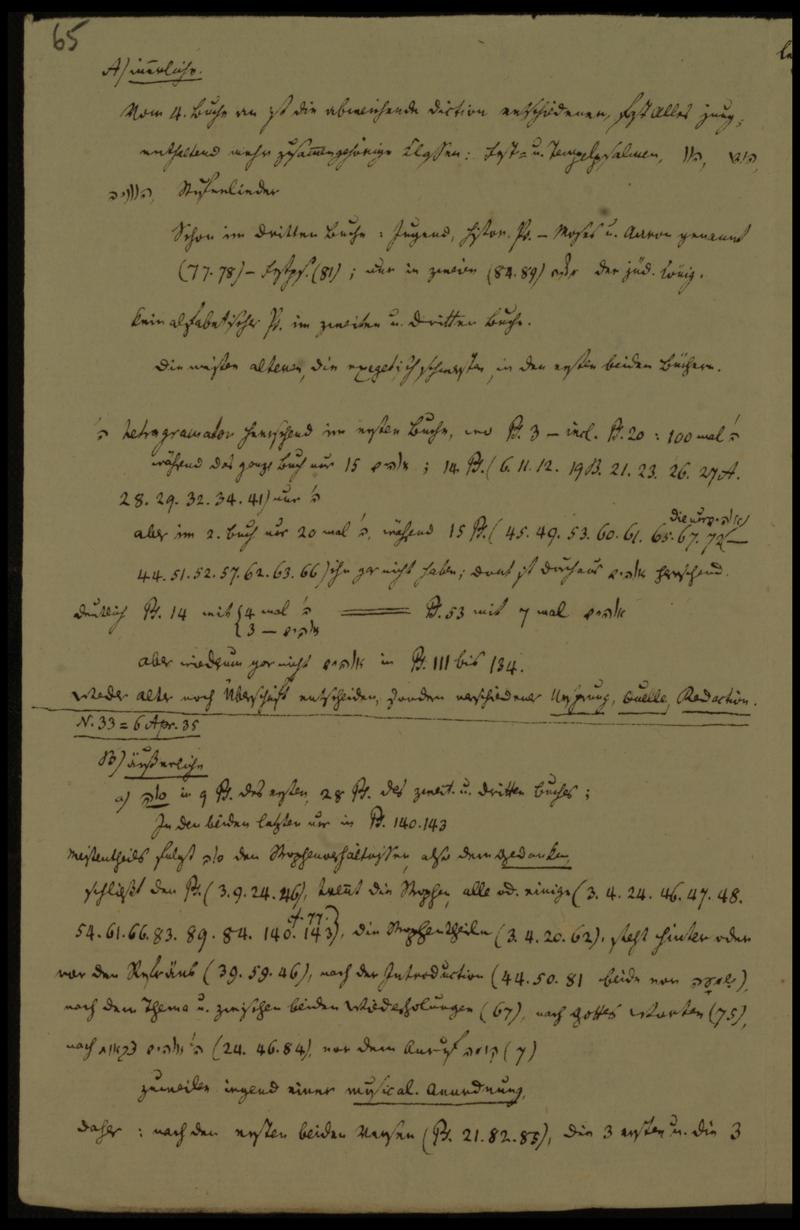 65
A) innerliche.
Vom 4. Buche an ist die abweichende Diction entschiedener, fast Alles jung,
enthaltend mehr zusammengehörige Classen: Fest- u. Tempelpsalmen,
Stufenlieder
Schon im dritten Buche: Jugend, histor. Ps. – Moses u. Aaron genannt
(77. 78) – Festps. (81); nur in zweien (84. 89) der jüd. König.
Kein alfabetischer Ps. im zweiten u. dritten Buche.
Die meisten alten, die exegetisch schwersten, in den ersten beiden Büchern.
'ה tetragramaton herrschend im ersten Buche, wo Ps. 3 – incl. Ps. 20 : 100 mal 'ה
während das ganze Buch nur 15 אלהים ; 14 Ps. (6. 11. 12. 19B. 21. 23. 26. 27A.
28. 29. 32. 34. 41) nur 'ה
aber im 2. Buch nur 20 mal 'ה, während 15 Ps. (45. 49. 53. 60. 61. 65. 67. 72 –
die nur אלהים
44. 51. 52. 57. 62. 63. 66) ihn gar nicht haben; dort ist durchaus אלהים herrschend.
deutlich Ps. 14 mit 4 mal 'ה Ps. 53 mit 7 mal אלהים
3 – אלהים
aber wiederum gar nicht אלהים in Ps. 111 bis 134.
Weder alter noch Überschrift entscheiden, sondern verschiedener Ursprung, Quelle, Redaction.
N. 33 = 6 Apr. 35
B) äußerliche
a) סלה in 9 Ps. des ersten, 28 Ps. des zweit. u. dritten Buches;
In den beiden letzten nur in Ps. 140. 143
Meistentheils folgt סלה den Strophenverhältnissen, also dem Gedanken,
schließt den Ps. (3. 9. 24. 46), trennt die Strophen, alle od. einige (3. 4. 24. 46. 47. 48.
54. 61. 66. 83. 89. 84. 140. 143), die Strophentheile (3. 4. 20. 62), steht hinter oder
cf. 77.
vor den Refräns (39. 59. 46), nach der Introduction (44. 50. 81 beide vor),
nach dem Thema u. zwischen beiden Wiederholungen (67), nach Gottes Worten (75),
nach (24. 46. 84), vor dem Anruf קומה (7)
zuweilen irgend einer musical. Anordnung,
daher : nach den ersten beiden Versen (Ps. 21. 82. 85), die 3 ersten u. die 3